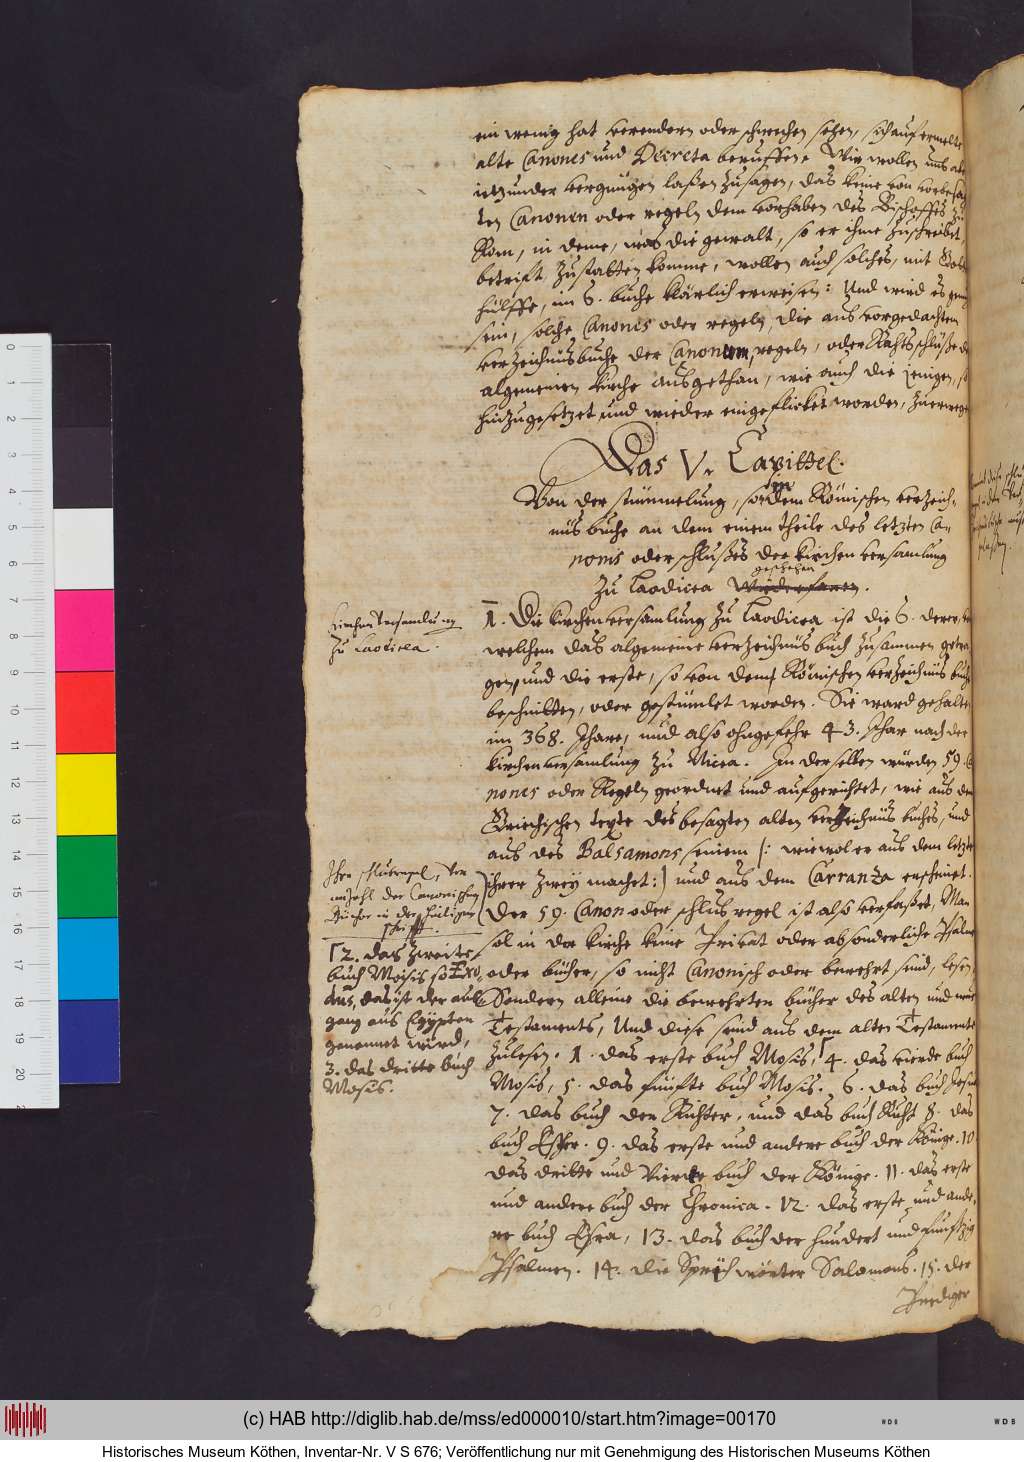 ein wenig hat verendern oder schwechen sehen, sich auf ermelte
alte Canones und Decreta beruffen. Wir wollen uns aber
ietzunder vergnügen laßen zusagen, das keine von vorbesag
ten Canonen oder regeln dem vorhaben des Bischoffes zu
Rom, in deme, was die gewalt, so er ihme zuschreibet,
betrift, zustatten komme, wollen auch solches, mit Gottes
hülffe, im 6. buche klärlich erweisen: Und wird es genug
sein, solche Canones oder regeln, die aus vorgedachtem
verzeichnüsbuche der Canonum, regeln, oder Rahtsschlüße der
algemeinen kirche ausgethan, wie auch die ienigen, so
hinzugesetzet und wieder eingeflicket worden, zuerwegen
Das V. Capittel.
Von der stümmelung, so in dem Römischen verzeich-
nüsbuche an dem einem theile des letzten Ca-
nonis oder schlußes der kirchen versamlung
geschehen
zu Laodicea wiederfaren.
Kirchen Versamlung
zu Laodicea.
1. Die kirchen versamlung zu Laodicea ist die 6. derer, von
welchem das algemeine verzeichnüs buch zusammen getra
gen, und die erste, so von dem Römischen verzeichnüs buche
beschnitten, oder gestümlet worden. Sie ward gehalten
im 368. Jhare, und also ohngefehr 43. Jhar nach der
kirchen versamlung zu Nicea. In derselben würden 59. Ca
nones oder Regeln geordnet und aufgerichtet, wie aus dem
Griechischen texte des besagten alten verzeichnüs buches, und
aus des Balsamons seinem /: wiewol er aus dem letzten
ihrer zwey machet :/ und aus dem Carranza erscheinet.
Der 59. Canon oder schlus regel ist also verfaßet, Man
sol in der kirche keine Privat oder absonderliche Psalmen
oder bücher, so nicht Canonisch oder bewehrt seind, lesen,
Sondern alleine die bewehrten bücher des alten und neuen
Testaments, Und diese seind aus dem alten Testamente
zulesen. 1. das erste buch Mosis, 4. das vierde buch
Mosis, 5. das fünfte buch Mosis. 6. das buch Josua
7. das buch der Richter, und das buch Ruht 8. das
buch Esther. 9. das erste und andere buch der Könige. 10
das dritte und Vierde buch der Könige. 11. das erste
und andere buch der Chronica. 12. das erste und ande-
re buch Esra, 13. das buch der hundert und funftzig
Psalmen. 14. die Sprichwörter Salomons. 15. der
Prediger
Ihre schlusregel, von
anzahl der Canonischen
Bücher in der heiligen
schrifft.
2. das zweite
buch Moisis so Exo-
dus, das ist der aus-
gang aus Egypten
genennet wird,
3. das dritte buch
Mosis.
(c) HAB http://diglib.hab.de/mss/ed000010/start.htm?image=00170
WDB
Historisches Museum Köthen, Inventar-Nr. V S 676; Veröffentlichung nur mit Genehmigung des Historischen Museums Köthen